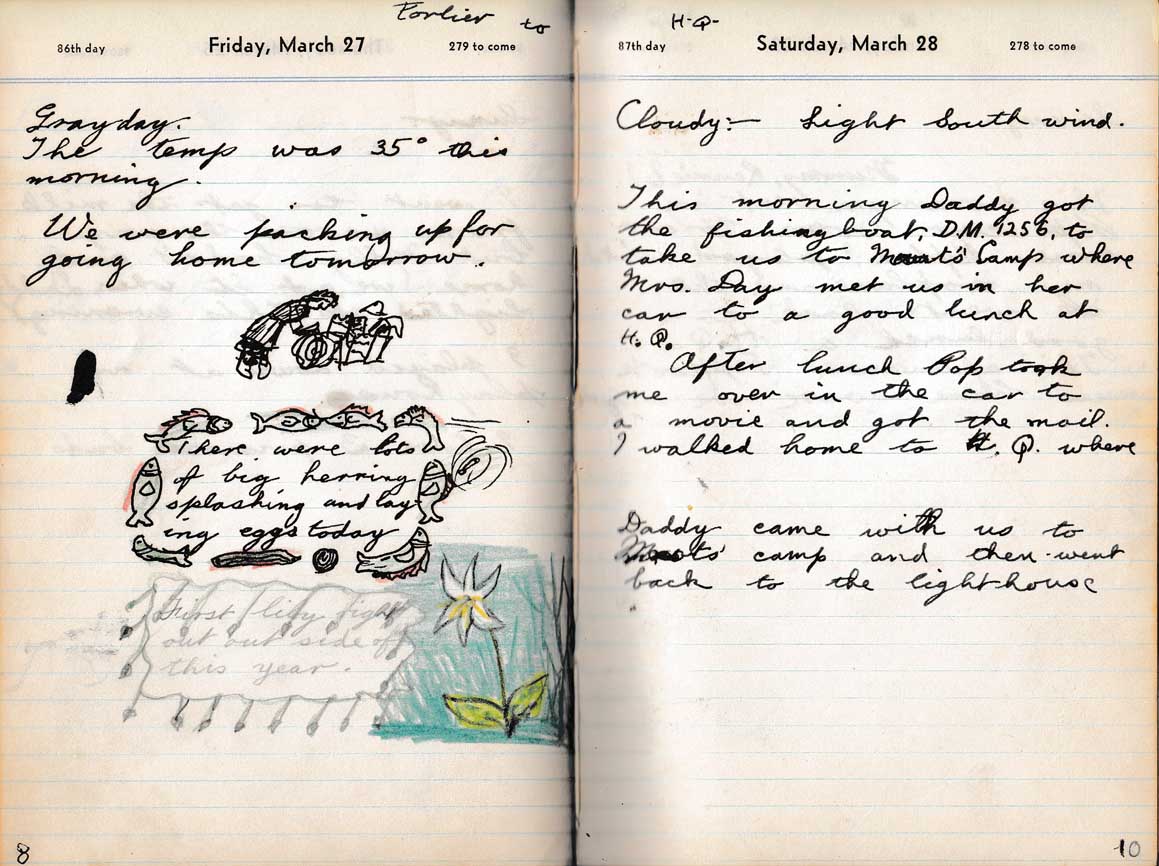 Porlier to
86th day Friday, March 27 279 to come
Gray day.
The temp was 35° this
morning.
We were packing up for
going home tomorrow.
There were lots
of big herring
splashing and lay-
ing eggs today
First lily right
out out side of
this year.
8
H-Q-
87th day Saturday, March 28 278 to come
Cloudy:- Light South wind.
This morning Daddy got
the fishingboat, D.M. 1256, to
take us to Camp where
Mrs. Day met us in her
car to a good lunch at
H. Q.
After lunch Pop took
me over in the car to
a movie and got the mail.
I walked home to H. Q. where
Daddy came with us to
camp and then went
back to the lighthouse
10